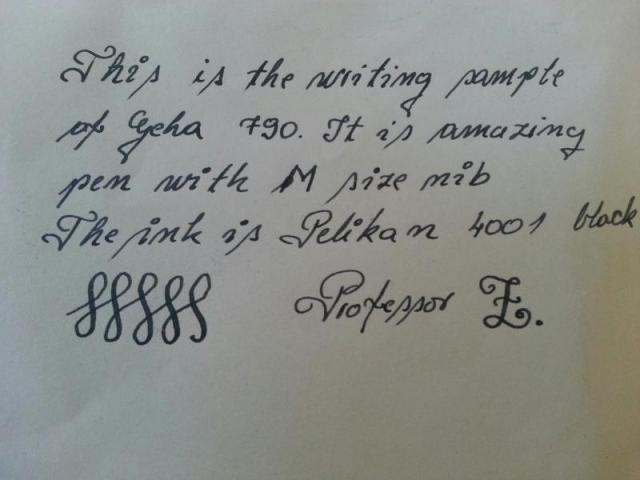 This is the writing sample
of Geha 790. It is amazing
pen with M size nib
The ink is Pelikan 4001 black
Professor Z.